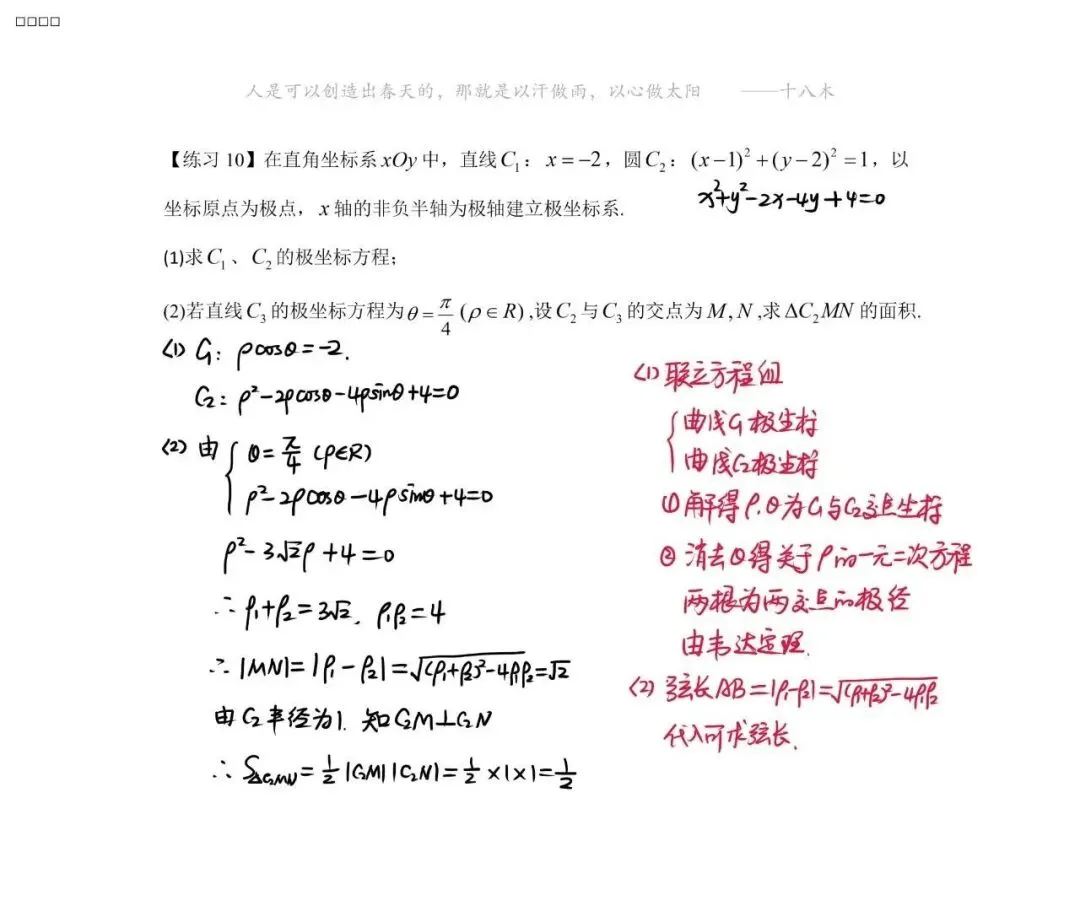 □□□□
人是可以创造出春天的，那就是以汗做雨，以心做太阳 ——十八木
【练习 10】在直角坐标系 xOy 中，直线 C₁：x = −2，圆 C₂：(x−1)² + (y−2)² = 1，以
x²+y²−2x−4y+4=0
坐标原点为极点，x 轴的非负半轴为极轴建立极坐标系.
(1)求 C₁、C₂ 的极坐标方程；
(2)若直线 C₃ 的极坐标方程为 θ = π/4 (ρ ∈ R) ,设 C₂ 与 C₃ 的交点为 M, N ,求 ΔC₂MN 的面积.
<1> C₁: ρcosθ=−2.
C₂: ρ²−2ρcosθ−4ρsinθ+4=0
<2> 由 { θ=π/4 (ρ∈R)
ρ²−2ρcosθ−4ρsinθ+4=0
ρ²−3√2ρ+4=0
∴ρ₁+ρ₂=3√2. ρ₁ρ₂=4
∴|MN|=|ρ₁−ρ₂|=√(ρ₁+ρ₂)²−4ρ₁ρ₂=√2
由C₂半径为1. 知C₂M⊥C₂N
∴S△C₂MN=1/2|C₂M||C₂N|=1/2×1×1=1/2
<1> 联立方程组
{ 曲线C₁极坐标
曲线C₂极坐标
① 解得ρ.θ为C₁与C₂交点坐标
② 消去θ得关于ρ的一元二次方程
两根为两交点的极径
由韦达定理.
<2> 弦长AB=|ρ₁−ρ₂|=√(ρ₁+ρ₂)²−4ρ₁ρ₂
代入可求弦长.